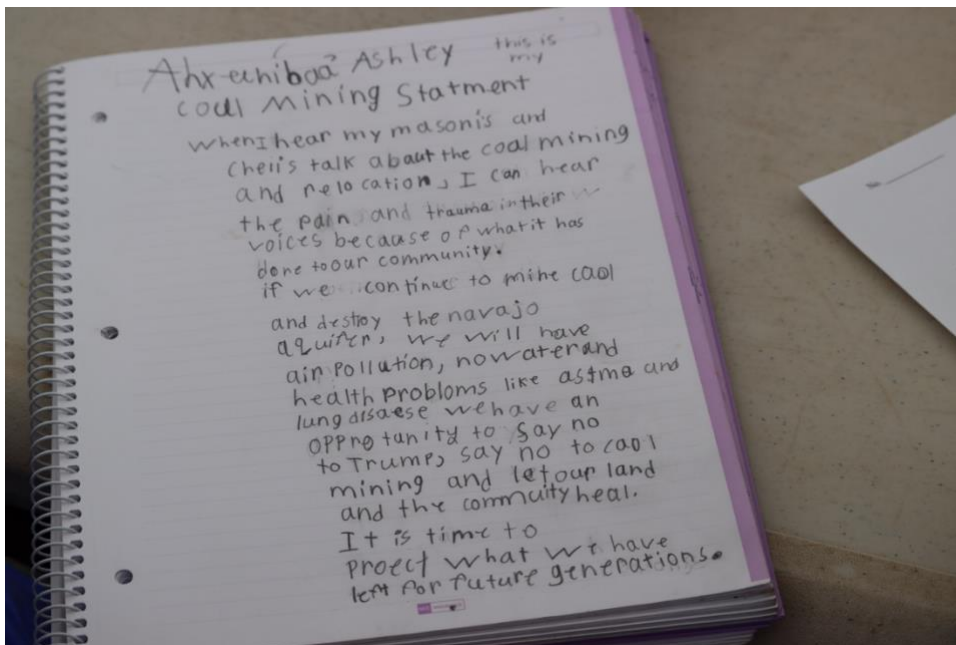 Ashley this is
my
coal Mining Statment
when I hear my masonis and
cheii's talk about the coal mining
and relocation, I can hear
the pain and trauma in their
voices because of what it has
done to our community.
if we continue to mine caol
and destroy the navajo
aquifer, we will have
air pollution, no water and
health probloms like astma and
lung disaese we have an
opprotunity to say no
to Trump, say no to caol
mining and let our land
and the commuity heal.
It is time to
proect what we have
left for future generations.